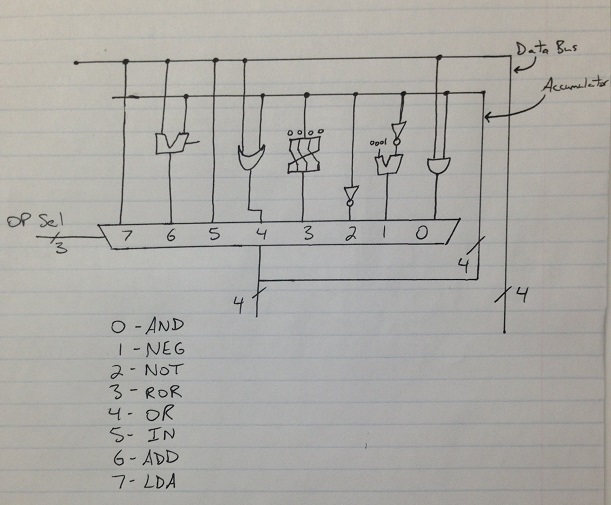 Data Bus
Accumulator
0000
0001
OP Sel
3
7 6 5 4 3 2 1 0
4
4
4
0 - AND
1 - NEG
2 - NOT
3 - ROR
4 - OR
5 - IN
6 - ADD
7 - LDA